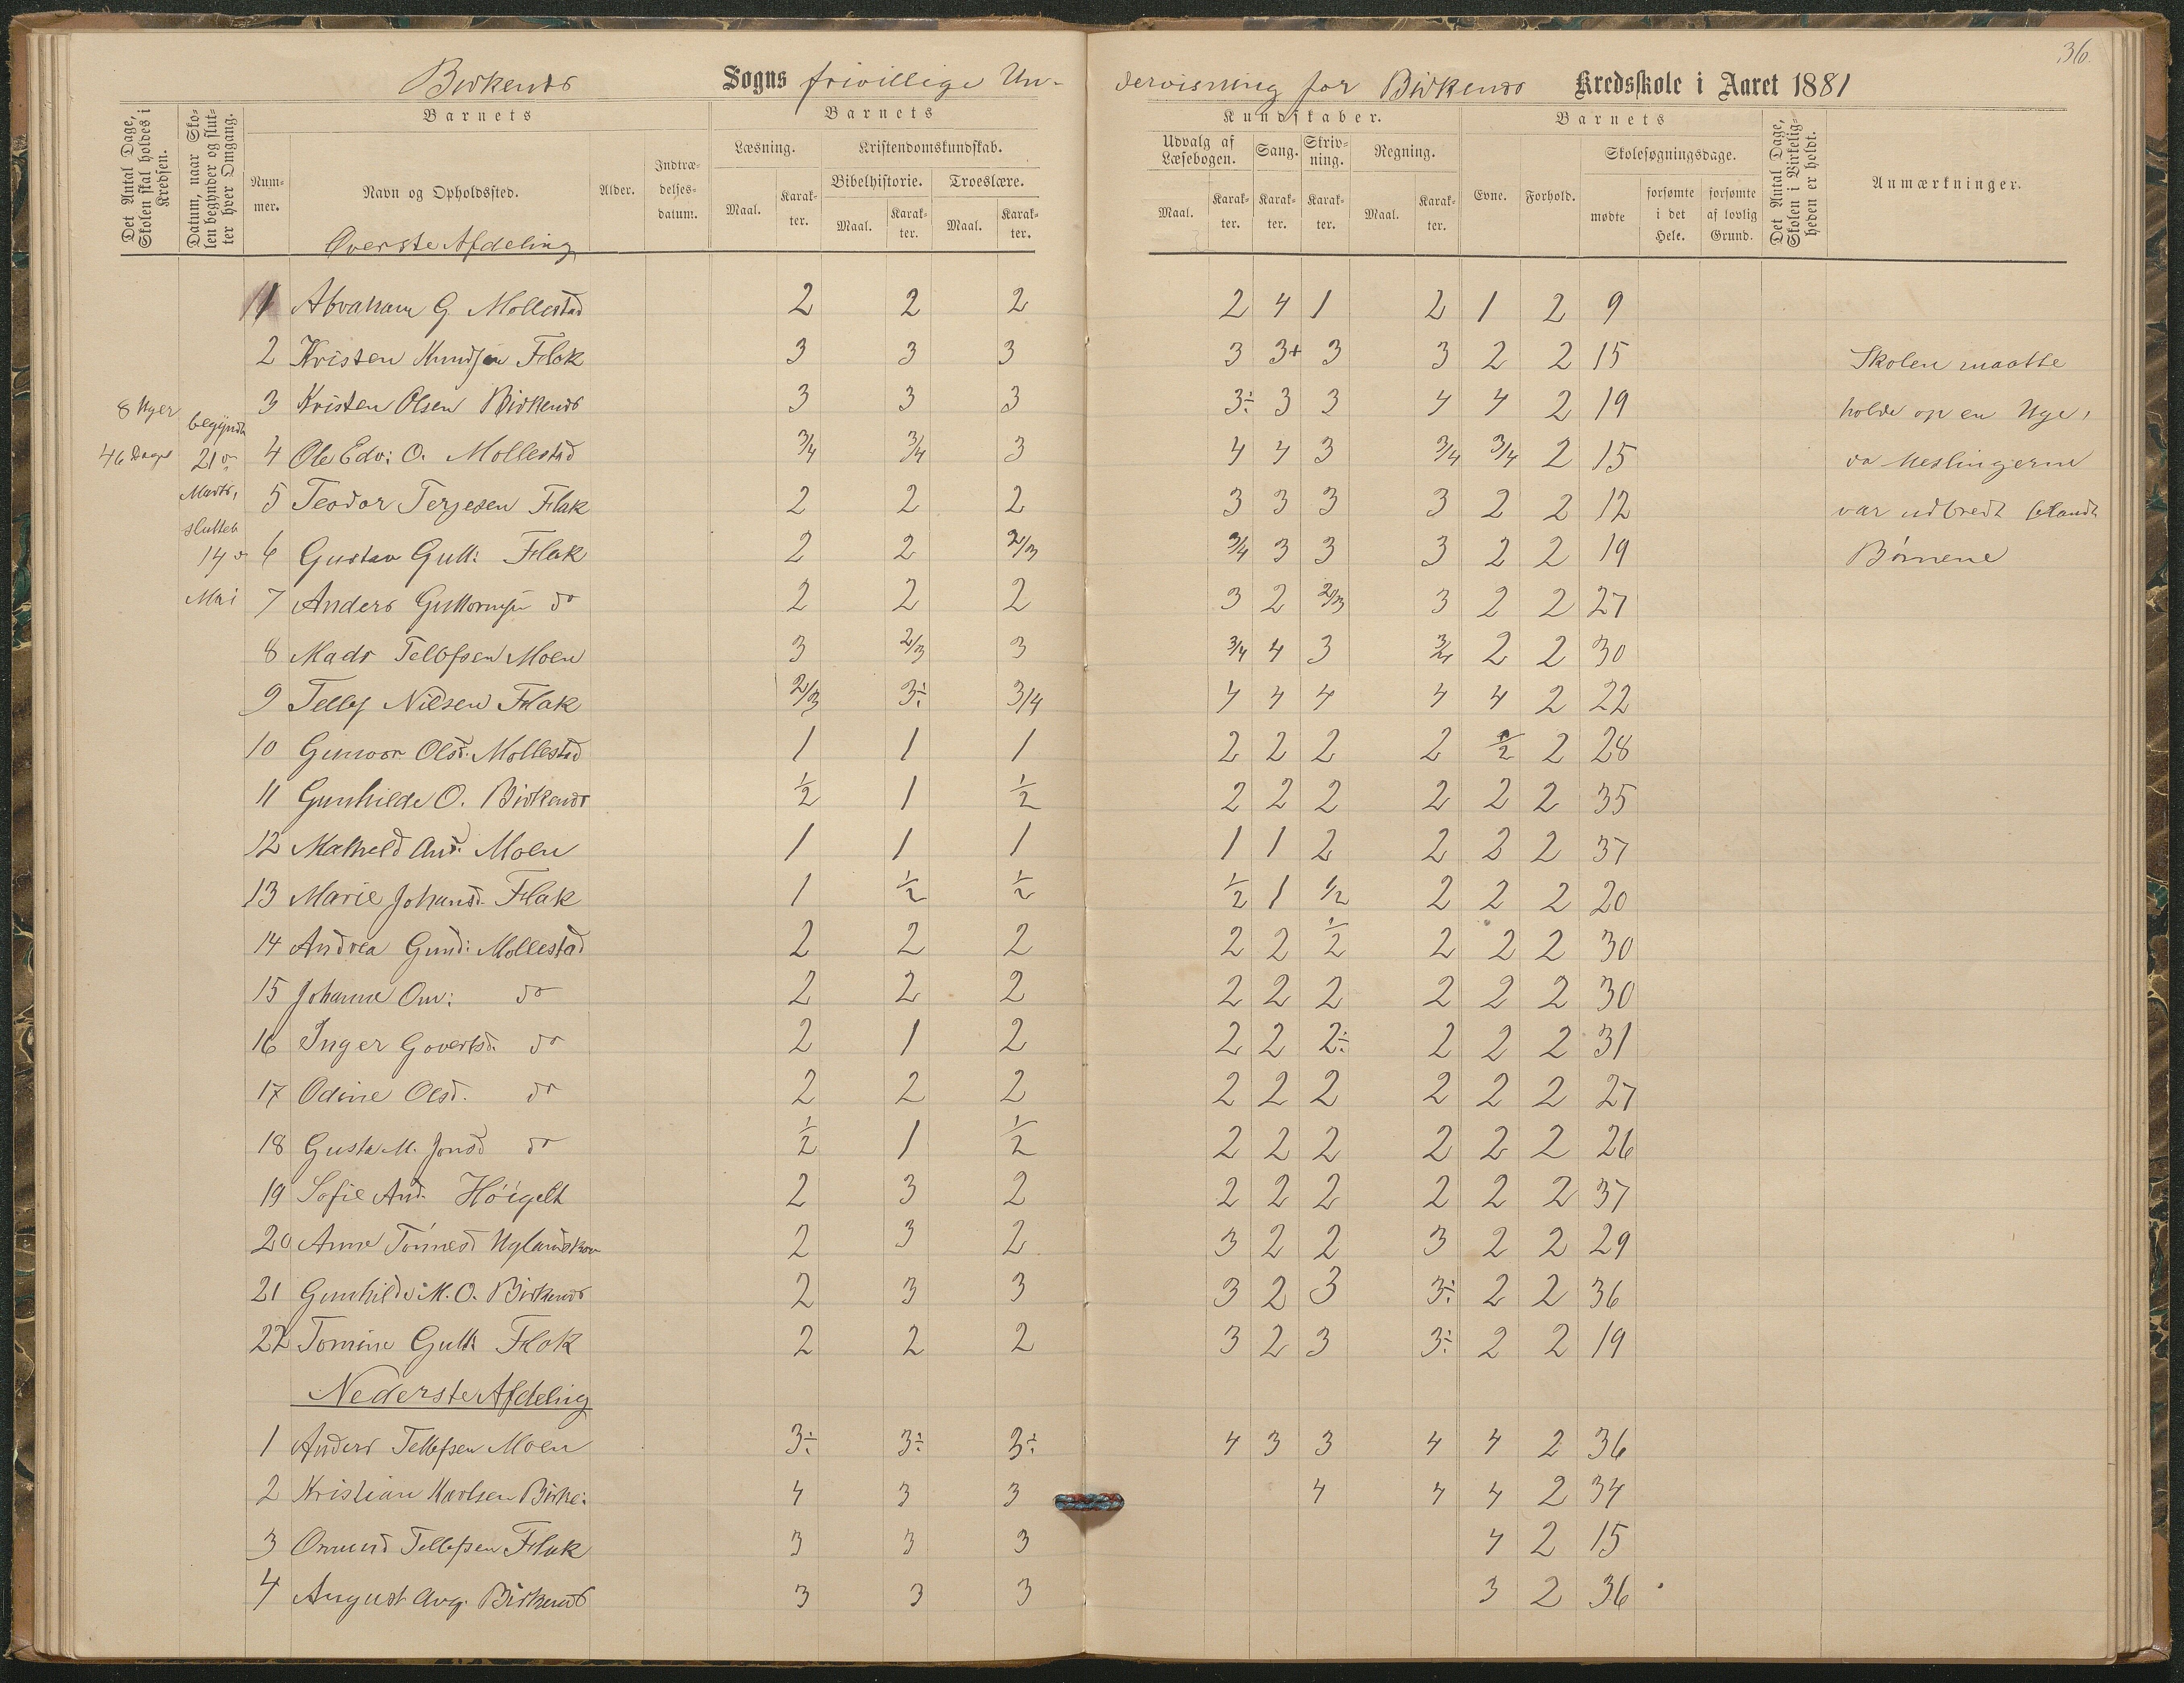 36
Birkenes Sogns frivillige Un-
dervisning for Birkenes Kredsskole i Aaret 1881
Det Antal Dage, Skolen skal holdes i Kredsen.
Datum, naar Skolen begynder og slutter hver Omgang.
Barnets
Nummer.
Navn og Opholdssted.
Alder.
Indtrædelsesdatum.
Barnets
Læsning.
Maal.
Karakter.
Kristendomskundskab.
Bibelhistorie.
Maal.
Karakter.
Troeslære.
Maal.
Karakter.
Kundskaber.
Udvalg af Læsebogen.
Maal.
Karakter.
Sang.
Karakter.
Skrivning.
Karakter.
Regning.
Maal.
Karakter.
Barnets
Evne.
Forhold.
Skolesøgningsdage.
mødte
forsømte i det Hele.
forsømte af lovlig Grund.
Det Antal Dage, Skolen i Virkeligheden er holdt.
Anmærkninger.
Øverste Afdeling
8 Uger
46 Dage
begyndte
21de
Marts,
sluttet
14de
Mai
1 Abraham G. Mollestad 2 2 2 2 4 1 2 1 2 9
2 Kristen Knudsen Flak 3 3 3 3 3+ 3 3 2 2 15
3 Kristen Olsen Birkenes 3 3 3 3÷ 3 3 4 4 2 19
4 Ole Edv: O. Mollestad 3/4 3/4 3 4 4 3 3/4 3/4 2 15
5 Teodor Terjesen Flak 2 2 2 3 3 3 3 2 2 12
6 Gustav Gutt: Flak 2 2 2/3 3/4 3 3 3 2 2 19
7 Anders Guttormsen do 2 2 2 3 2 2/3 3 2 2 27
8 Mads Tellefsen Moen 3 2/3 3 3/4 4 3 3/4 2 2 30
9 Tellef Nilsen Flak 2/3 3÷ 3/4 4 4 4 4 4 2 22
10 Gunvor Olsd. Mollestad 1 1 1 2 2 2 2 1/2 2 28
11 Gunhilde O. Birkenes 1/2 1 1/2 2 2 2 2 2 2 35
12 Mathild And. Moen 1 1 1 1 1 2 2 2 2 37
13 Marie Johansd. Flak 1 1/2 1/2 1/2 1 1/2 2 2 2 20
14 Andrea Gund: Mollestad 2 2 2 2 2 1/2 2 2 2 30
15 Johanne Om: do 2 2 2 2 2 2 2 2 2 30
16 Inger Govertsd. do 2 1 2 2 2 2÷ 2 2 2 31
17 Odine Olsd. do 2 2 2 2 2 2 2 2 2 27
18 Gusta M. Jonsd do 1/2 1 1/2 2 2 2 2 2 2 26
19 Sofie And. Høigelt 2 3 2 2 2 2 2 2 2 37
20 Anne Tønnesd Uglandskon 2 3 2 3 2 2 3 2 2 29
21 Gunhilde M. O. Birkenes 2 3 3 3 2 3 3÷ 2 2 36
22 Tomine Gutt: Flak 2 2 2 3 2 3 3÷ 2 2 19
Nederste Afdeling
1 Anders Tellefsen Moen 3÷ 3÷ 3÷ 4 3 3 4 4 2 36
2 Kristian Karlsen Birke: 4 3 3 4 4 4 2 34
3 Omund Tellefsen Flak 3 3 3 4 2 15
4 August Aug. Birkenes 3 3 3 3 2 36
Skolen maatte
holde op en Uge,
da Meslingerne
var udbredt blandt
Børnene